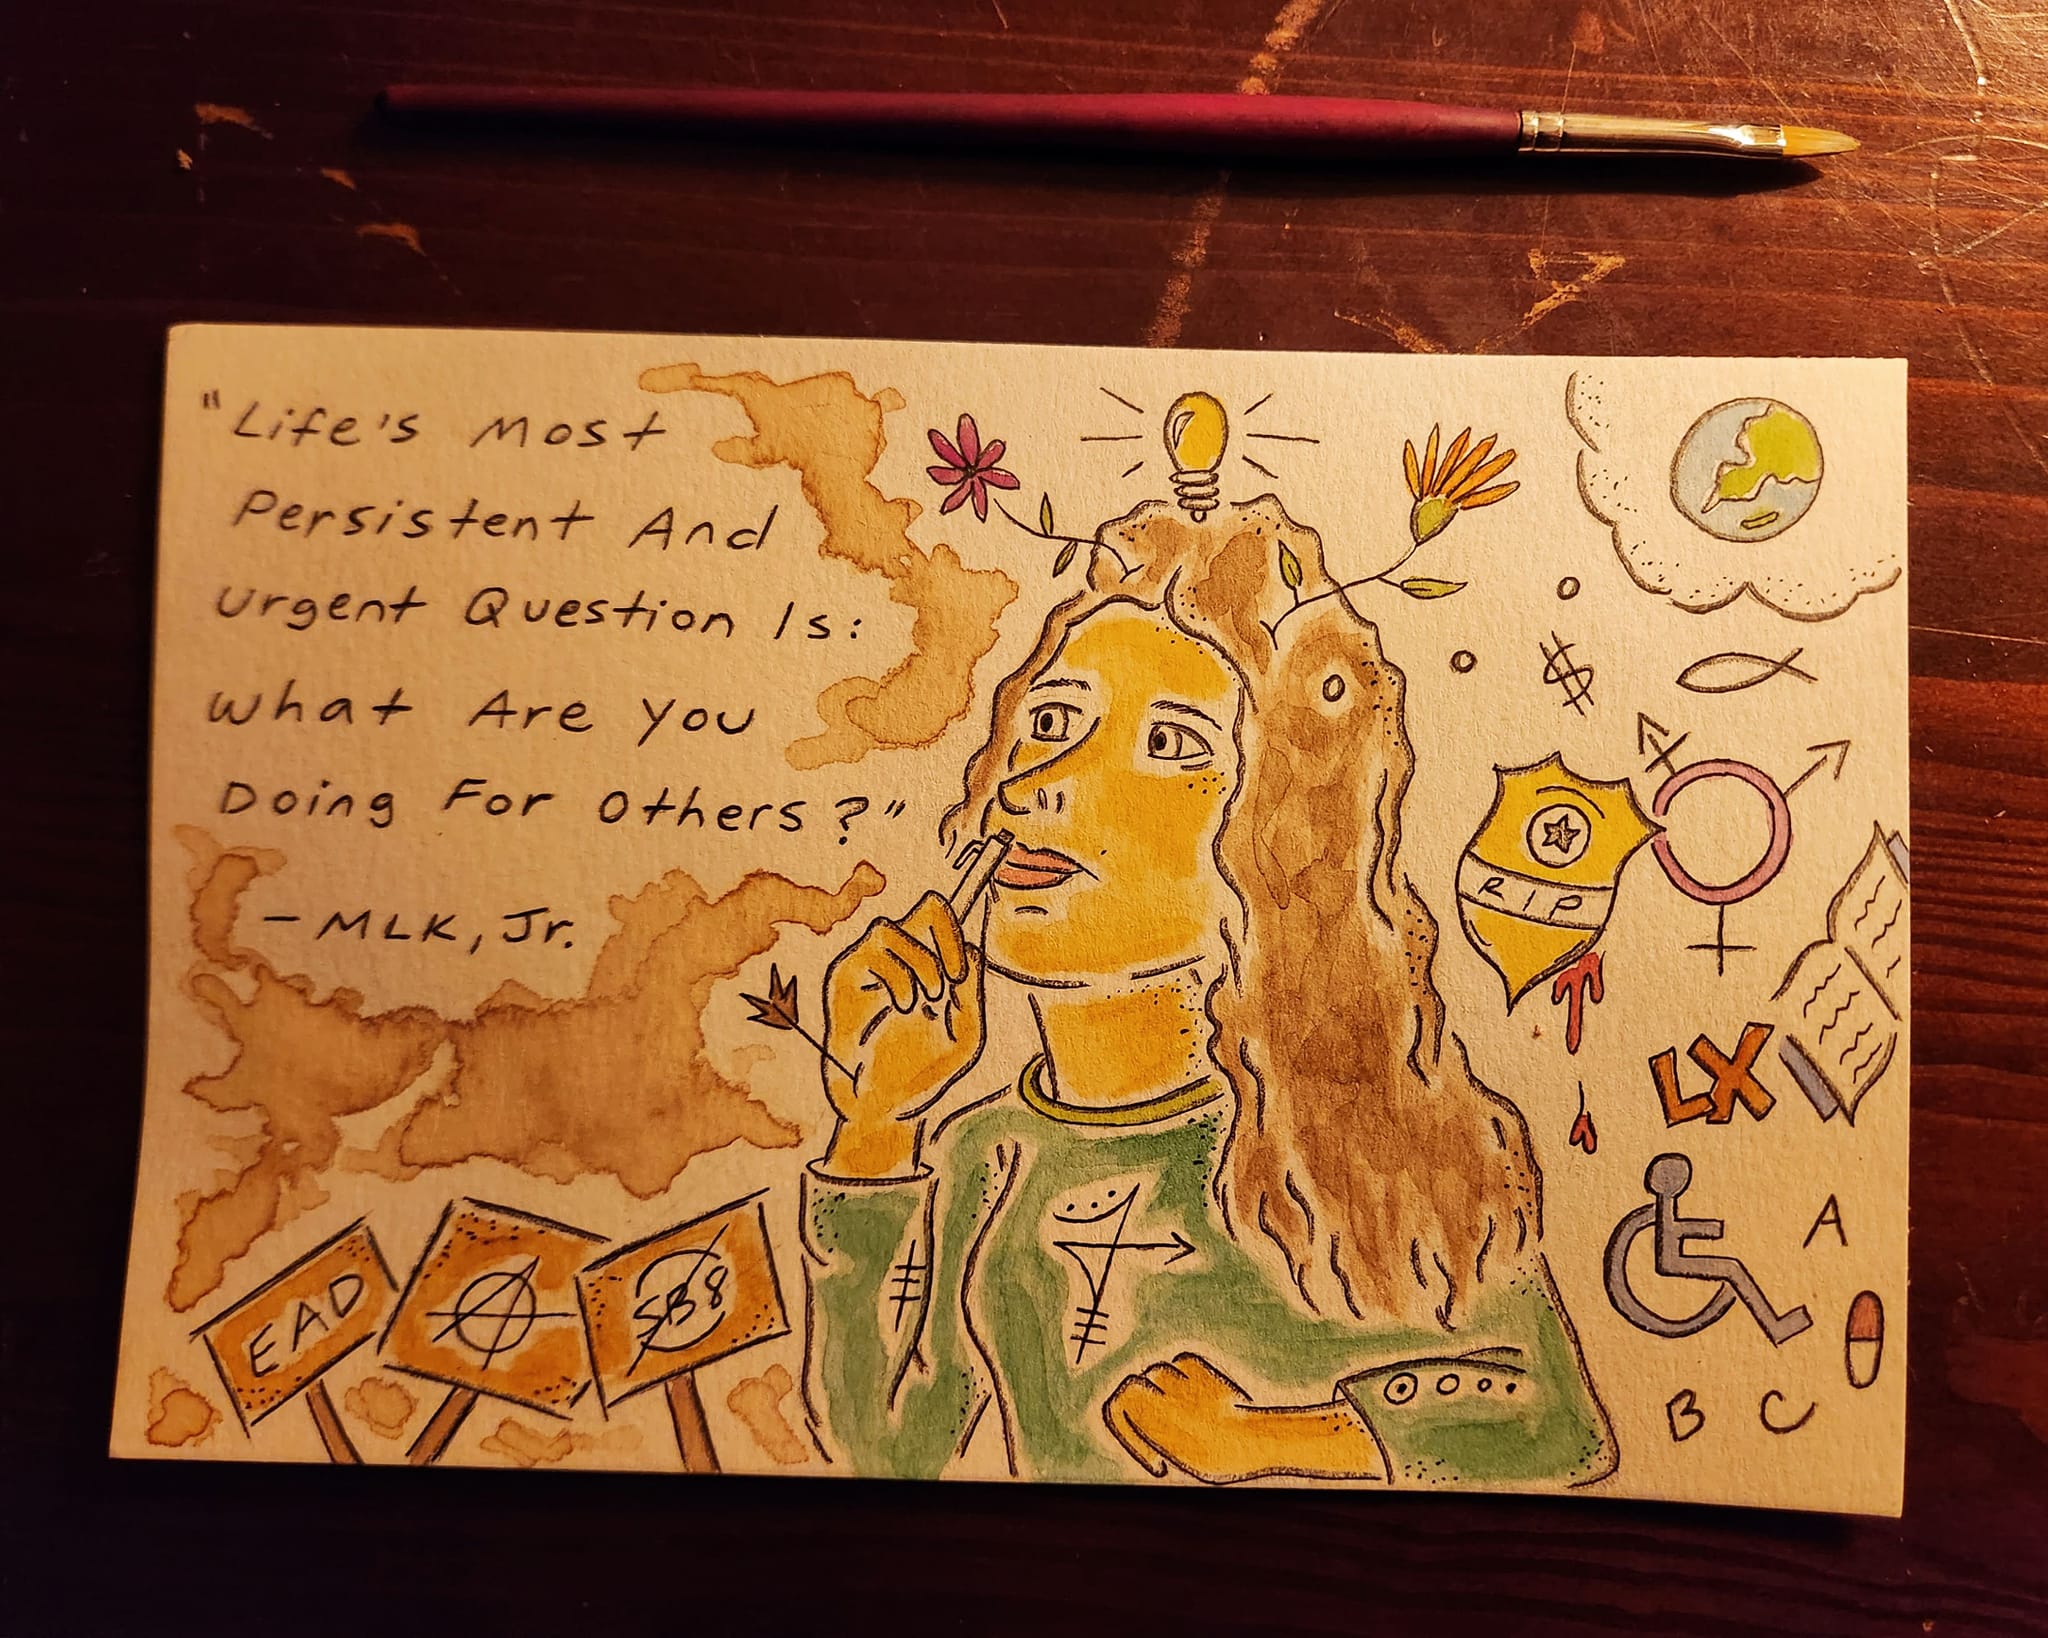 "Life's Most
Persistent And
Urgent Question Is:
What Are You
Doing For Others?"
- MLK, Jr.
EAD
A
SB8
$
RIP
LX
A
B C